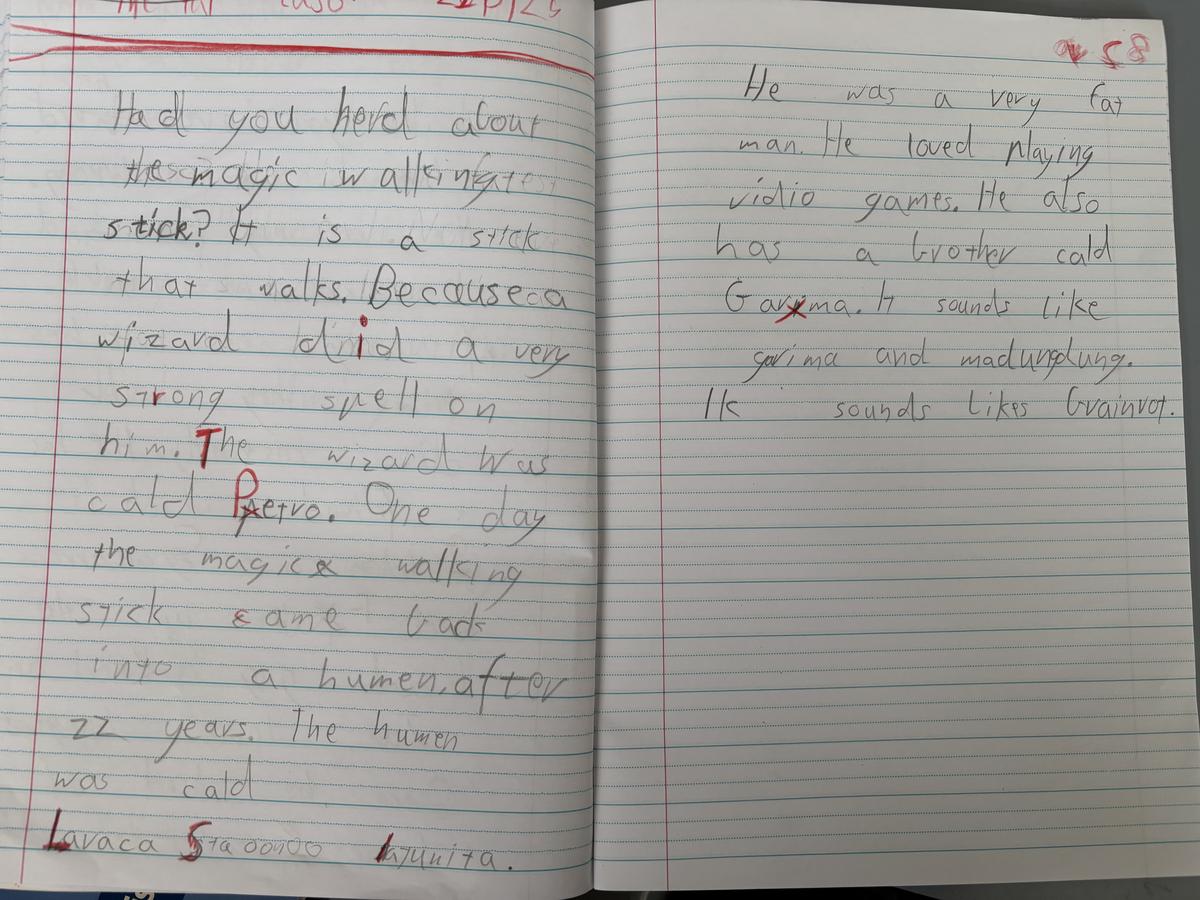 Had you herd about
the magic walking
stick? It is a stick
that walks. Because a
wizard did a very
strong spell on
him. The wizard was
cald Petro. One day
the magic walking
stick came back
into a humen, after
22 years. The humen
was cald
Lavaca
58
He was a very fat
man. He loved playing
vidio games. He also
has a brother cald
Garma. It sounds like
garima and madungdung.
It sounds likes brainrot.